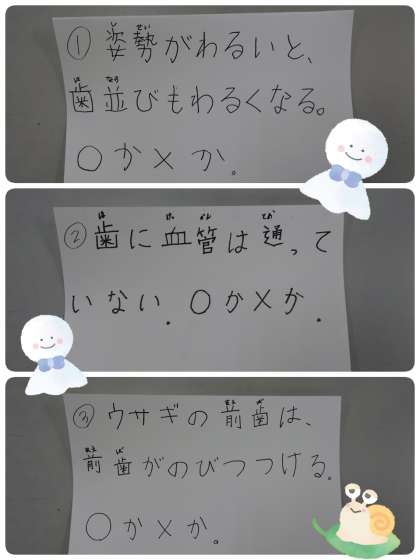 ①姿勢がわるいと、
歯並びもわるくなる。
○か×か。
②歯に血管は通って
いない。○か×か。
③ウサギの前歯は、
前歯がのびつづける。
○か×か。